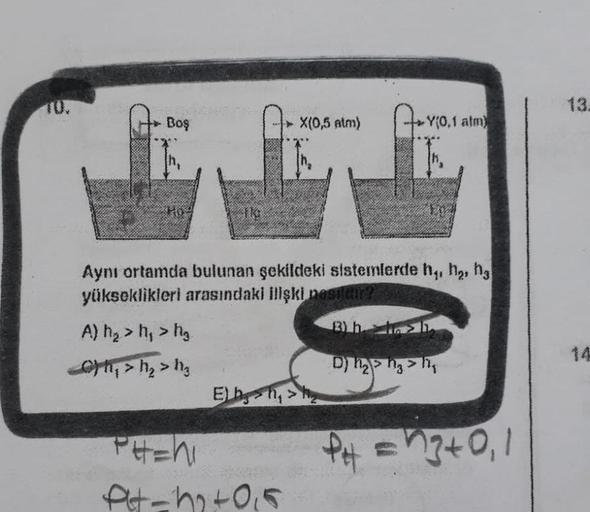 10.
13.
Boş
X(0,5 atm)
Y(0,1 atm)
h₁
h₂
h₃
Hg
Hg
Hg
Aynı ortamda bulunan şekildeki sistemlerde h₁, h₂, h₃
yükseklikleri arasındaki ilişki nasıldır?
A) h₂ > h₁ > h₃
B) h₁ > h₃ > h₂
C) h₁ > h₂ > h₃
D) h₂ > h₃ > h₁
14
E) h₃ > h₁ > h₂
PH=h1
PH = h3+0,1
PH=h2+0,5